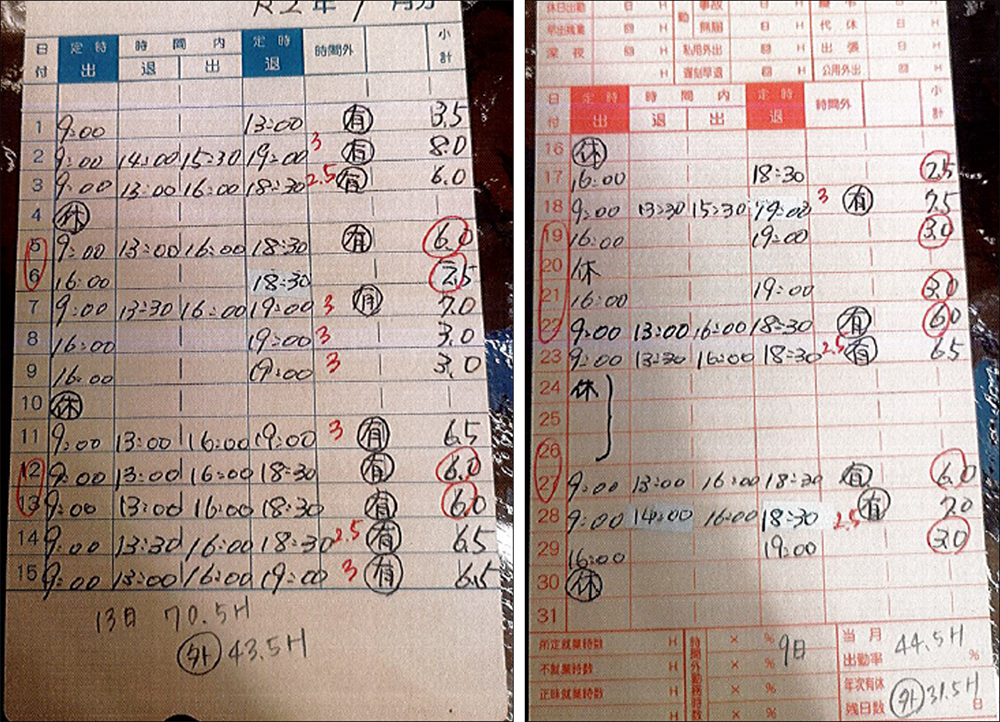 R2年 月分
日付 定時 出 時間内 退 出 定時 退 時間外 小計
1 9:00 13:00 有 3.5
2 9:00 14:00 15:30 19:00 3 有 8.0
3 9:00 13:00 16:00 18:30 2.5 有 6.0
4 休
5 9:00 13:00 16:00 18:30 有 6.0
6 16:00 18:30 2.5
7 9:00 13:30 16:00 19:00 3 有 7.0
8 16:00 19:00 3 3.0
9 16:00 19:00 3 3.0
10 休
11 9:00 13:00 16:00 19:00 3 有 6.5
12 9:00 13:00 16:00 18:30 有 6.0
13 9:00 13:00 16:00 18:30 有 6.0
14 9:00 13:30 16:00 18:30 2.5 有 6.5
15 9:00 13:00 16:00 19:00 3 有 6.5
13日 70.5H
外 43.5H
休日出勤 回 H 勤 事故 日 H 慶弔 日 H
早出残業 回 H 無届 日 H 代休 日 H
深夜 回 H 私用外出 回 H 出張 日 H
H 遅刻早退 回 H 公用外出 回 H
日付 定時 出 時間内 退 出 定時 退 時間外 小計
16 休
17 16:00 18:30 2.5
18 9:00 13:30 15:30 19:00 3 有 7.5
19 16:00 19:00 3.0
20 休
21 16:00 19:00 3.0
22 9:00 13:00 16:00 18:30 有 6.0
23 9:00 13:30 16:00 18:30 2.5 有 6.5
24 休
25
26
27 9:00 13:00 16:00 18:30 有 6.0
28 9:00 14:00 16:00 18:30 2.5 有 7.0
29 16:00 19:00 3.0
30 休
31
所定就業時数 H 時間外勤務時数 × % 9日 当月出勤率 44.5H %
不就業時数 H × %
正味就業時数 H × % 年次有休残日数 外 31.5H 日